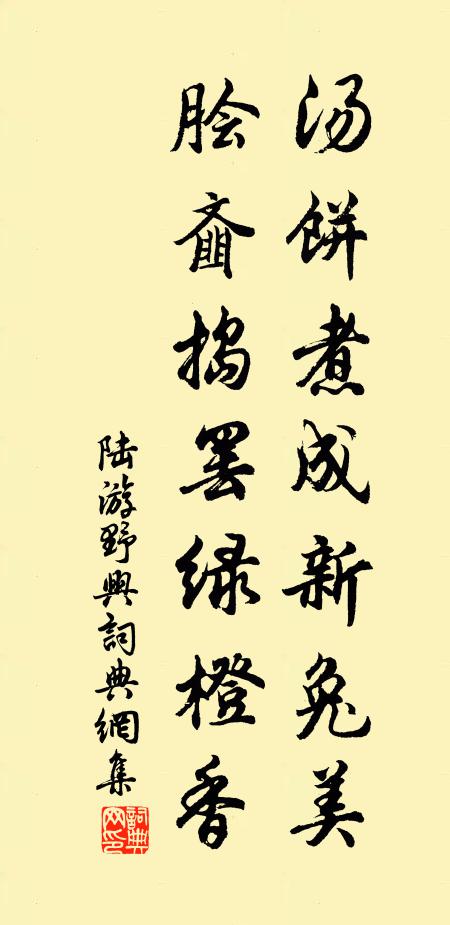 汤饼煮成新兔美
脍齑捣罢绿橙香
陆游野興詞典網集
詞典網印